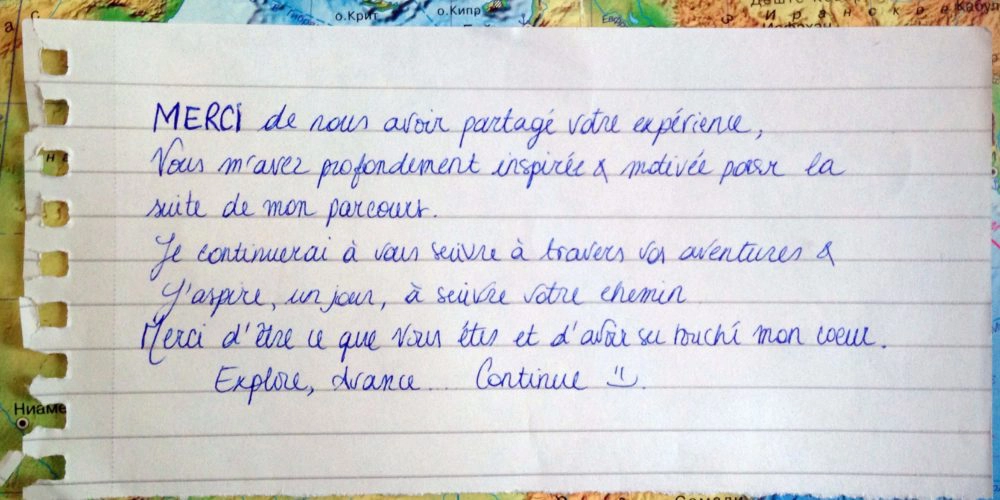 о.Крит
о.Кипр
Иранское
Кабул
MERCI de nous avoir partagé votre expérience,
Vous m'avez profondement inspirée & motivée pour la
suite de mon parcours.
Je continuerai à vous suivre à travers vos aventures &
J'aspire, un jour, à suivre votre chemin
Merci d'être ce que vous êtes et d'avoir su touché mon coeur.
Explore, Avance... Continue
Ниаме